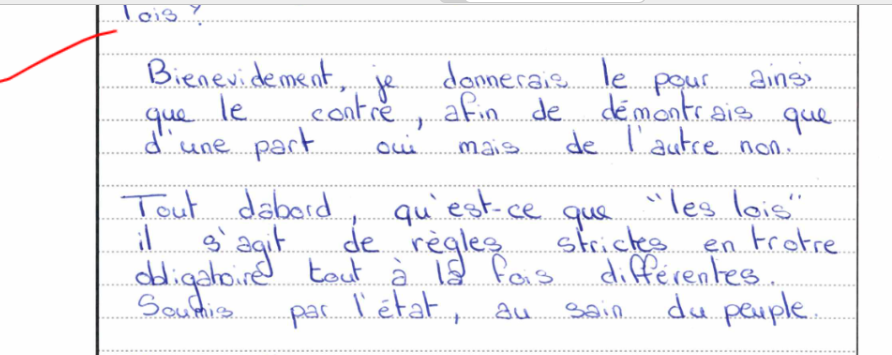 lois ?
Bienevidement, je donnerais le pour ainsi
que le contre, afin de démontrais que
d'une part oui mais de l'autre non.
Tout dabord, qu'est-ce que "les lois"
il s'agit de règles strictes en
obligatoire tout à la fois différentes.
Soumis par l'état, au sain du peuple.